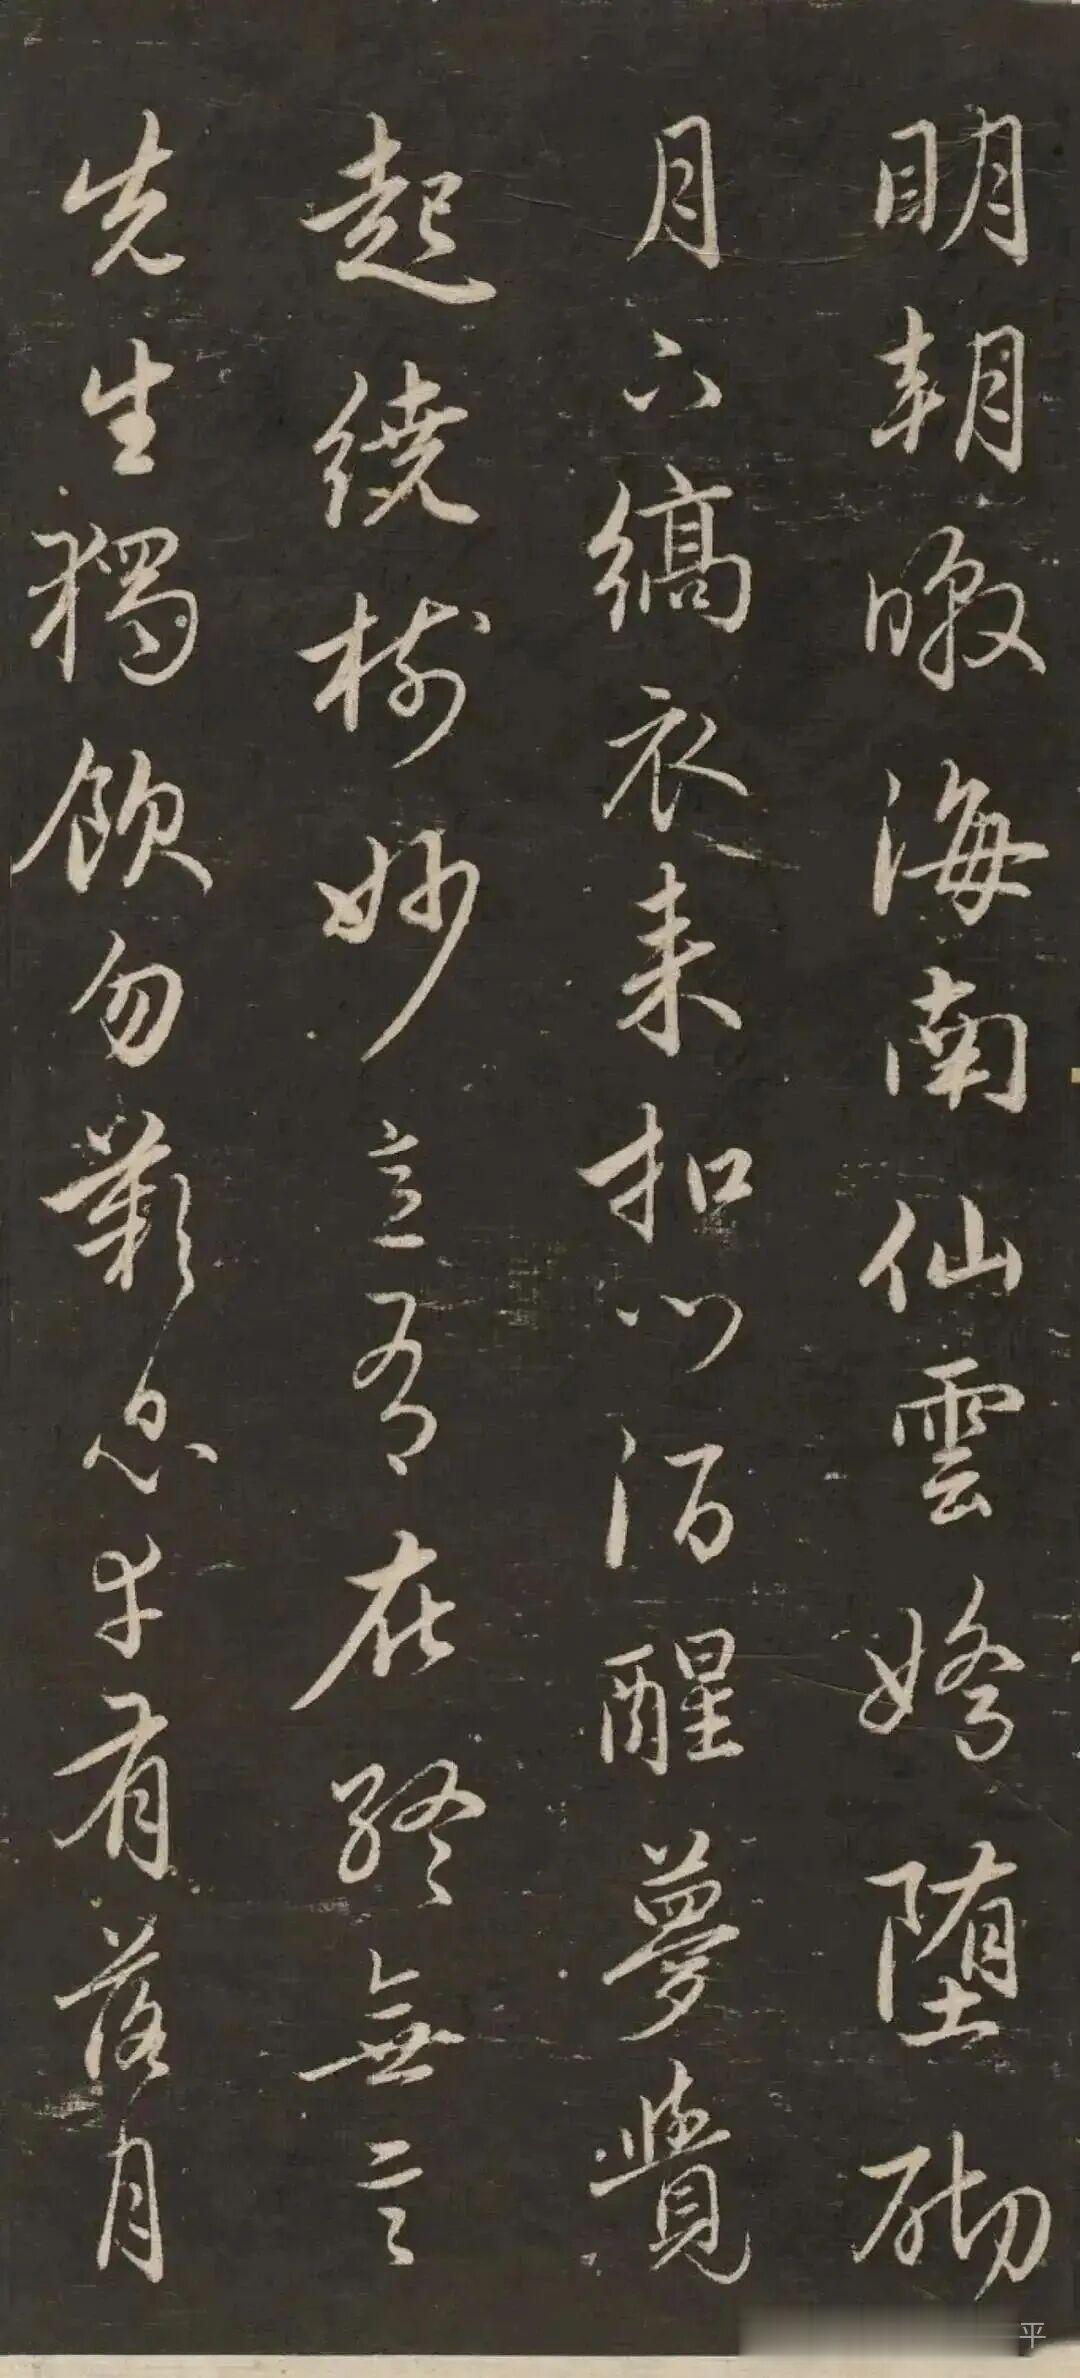 明朝暾海南仙雲嬌堕砌
月下縞衣来扣門酒醒夢覺
起繞樹妙意有在終無言
先生獨飲勿歎息幸有落月
平